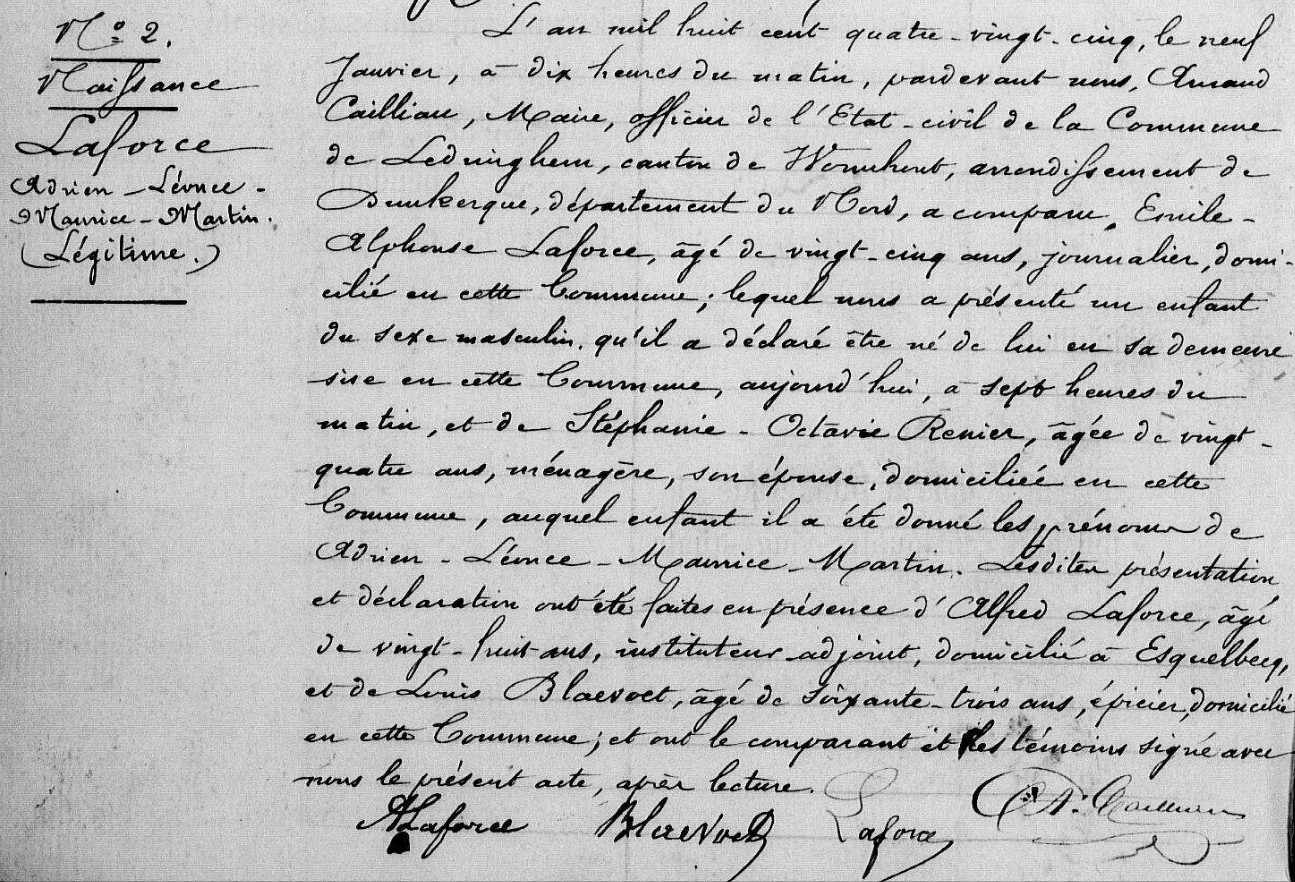 Nº 2.
Naissance
Laforce
Adrien - Léonce -
Maurice - Martin.
(Légitime.)
L'an mil huit cent quatre-vingt-cinq, le neuf
Janvier, à dix heures du matin, pardevant nous, Amand
Cailliau, Maire, officier de l'Etat-civil de la Commune
de Ledringhem, canton de Wormhout, arrondissement de
Dunkerque, département du Nord, a comparu, Emile -
Alphonse Laforce, âgé de vingt-cinq ans, journalier, domi-
cilié en cette Commune; lequel nous a présenté un enfant
du sexe masculin, qu'il a déclaré être né de lui en sa demeure
sise en cette Commune, aujourd'hui, à sept heures du
matin, et de Stéphanie - Octavie Renier, âgée de vingt-
quatre ans, ménagère, son épouse, domiciliée en cette
Commune, auquel enfant il a été donné les prénoms de
Adrien - Léonce - Maurice - Martin. Lesdites présentation
et déclaration ont été faites en présence d'Alfred Laforce, âgé
de vingt-huit ans, instituteur-adjoint, domicilié à Esquelbecq,
et de Louis Blaevoet, âgé de soixante-trois ans, épicier, domicilié
en cette Commune; et ont le comparant et les témoins signé avec
nous le présent acte, après lecture.
ALaforce Blaevoet Laforce A. Cailliau